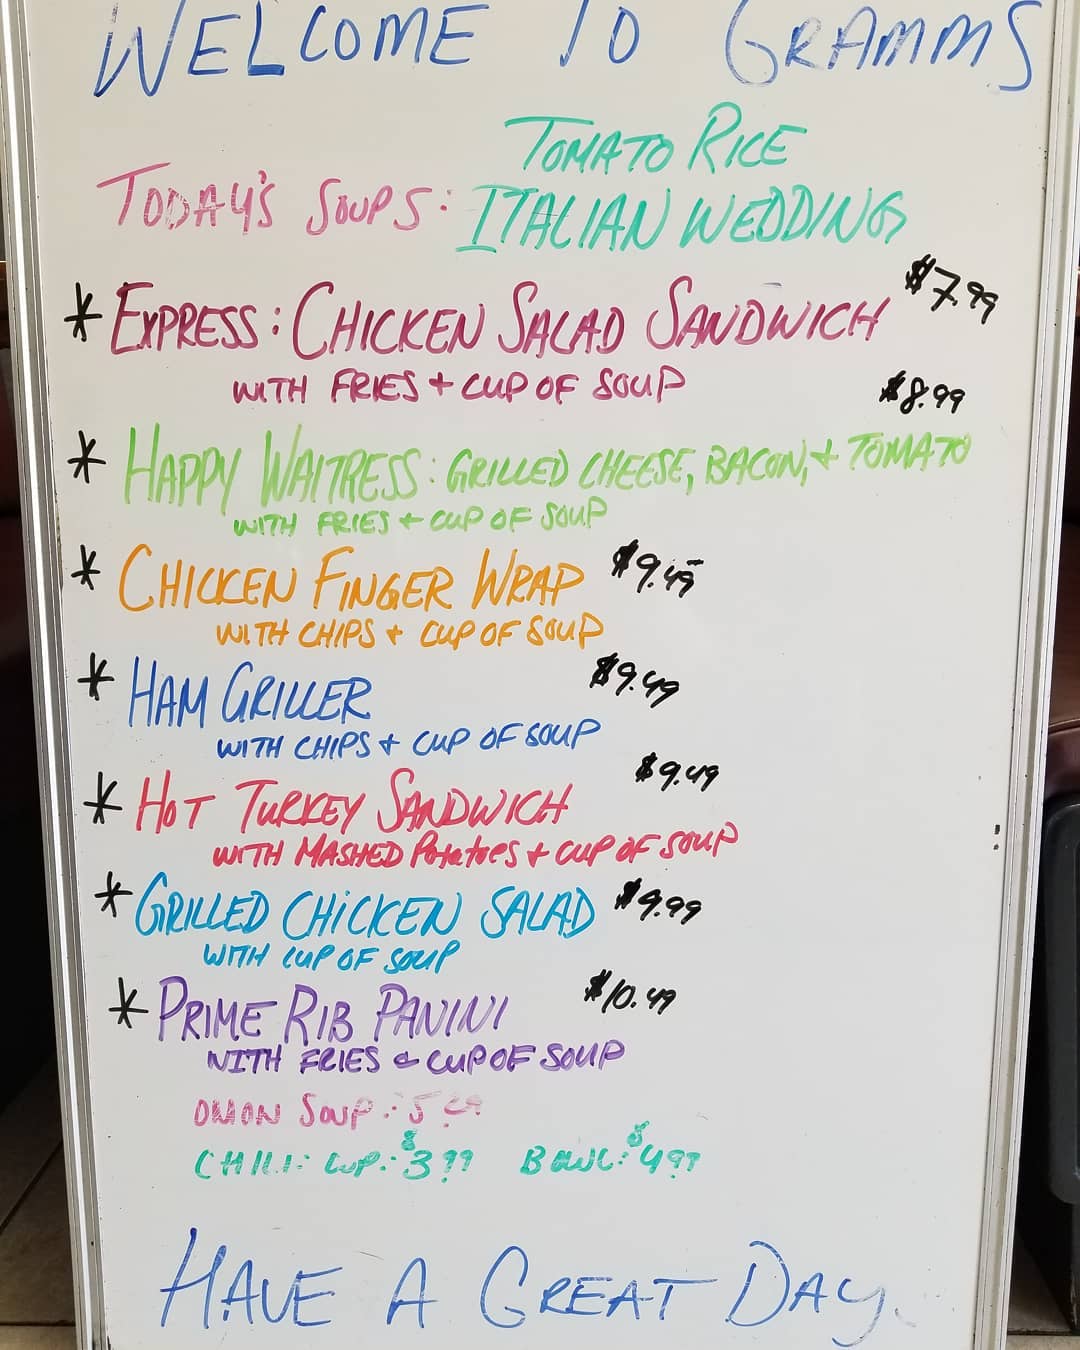 WELCOME TO GRAMMS
TOMATO RICE
TODAY'S SOUPS: ITALIAN WEDDING
* EXPRESS: CHICKEN SALAD SANDWICH $7.99
WITH FRIES + CUP OF SOUP
$8.99
* HAPPY WAITRESS: GRILLED CHEESE, BACON, + TOMATO
WITH FRIES + CUP OF SOUP
* CHICKEN FINGER WRAP $9.49
WITH CHIPS + CUP OF SOUP
* HAM GRILLER $9.49
WITH CHIPS + CUP OF SOUP
$9.49
* HOT TURKEY SANDWICH
WITH MASHED POTATOES + CUP OF SOUP
* GRILLED CHICKEN SALAD $9.99
WITH CUP OF SOUP
* PRIME RIB PANINI $10.49
WITH FRIES & CUP OF SOUP
ONION SOUP:
CHILI: CUP: $3.99 BOWL: $4.99
HAVE A GREAT DAY.